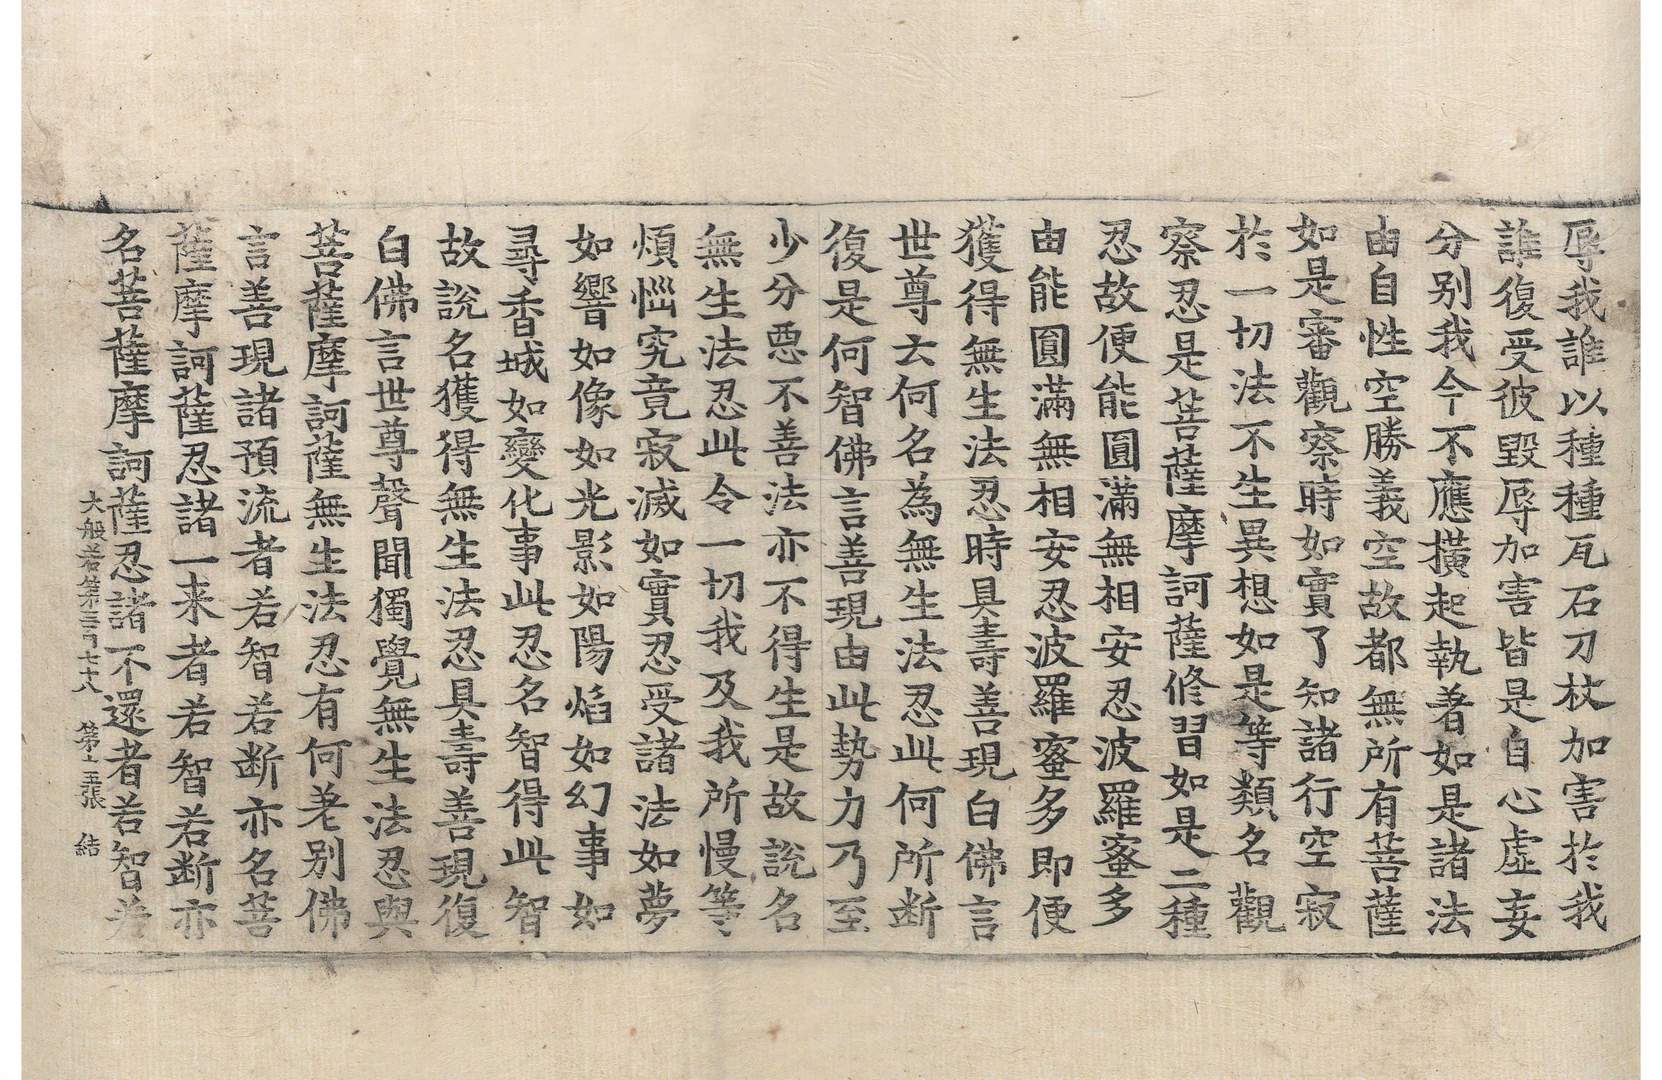 辱我誰以種種瓦石刀杖加害於我
誰復受彼毀辱加害皆是自心虛妄
分別我今不應橫起執著如是諸法
由自性空勝義空故都無所有菩薩
如是審觀察時如實了知諸行空寂
於一切法不生異想如是等類名觀
察忍是菩薩摩訶薩修習如是二種
忍故便能圓滿無相安忍波羅蜜多
由能圓滿無相安忍波羅蜜多即便
獲得無生法忍時具壽善現白佛言
世尊云何名為無生法忍此何所斷
復是何智佛言善現由此勢力乃至
少分惡不善法亦不得生是故說名
無生法忍此令一切我及我所慢等
煩惱究竟寂滅如實忍受諸法如夢
如響如像如光影如陽焰如幻事如
尋香城如變化事此忍名智得此智
故說名獲得無生法忍具壽善現復
白佛言世尊聲聞獨覺無生法忍與
菩薩摩訶薩無生法忍有何差別佛
言善現諸預流者若智若斷亦名菩
薩摩訶薩忍諸一来者若智若斷亦
名菩薩摩訶薩忍諸不還者若智若
大般若第三百七十八 第十五張 結